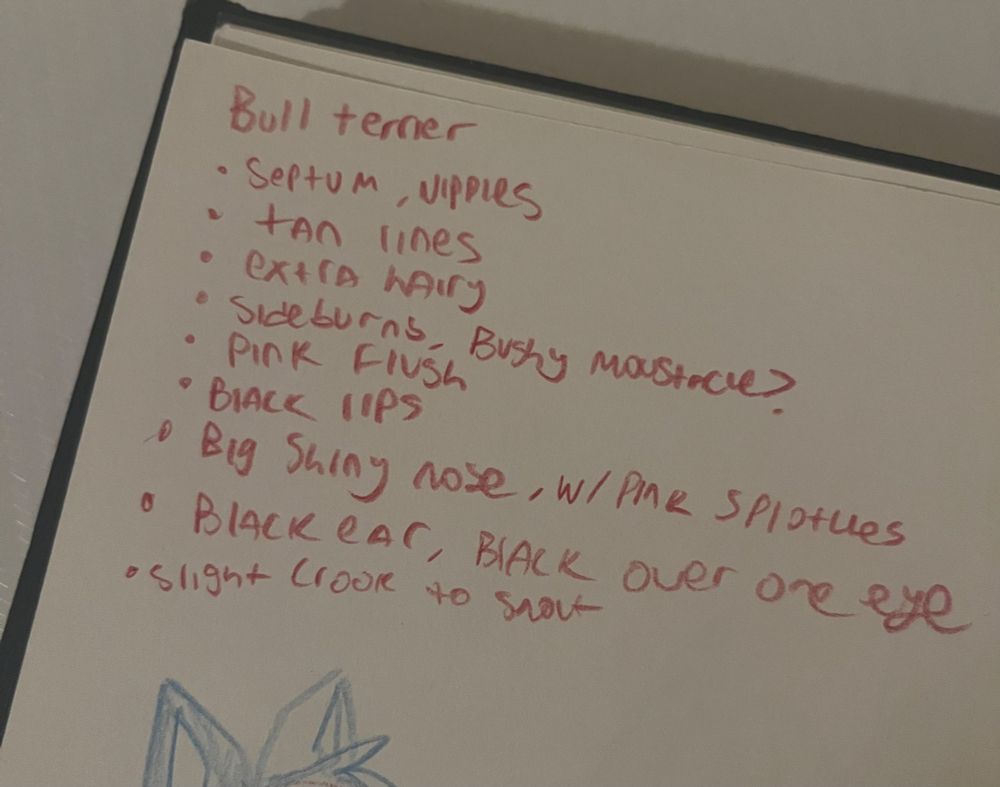 Bull terrier
• Septum, nipples
• tan lines
• extra hairy
• Sideburns, Bushy moustache?
• Pink Flush
• Black lips
• Big Shiny nose, w/ Pink Splotches
• Black ear, Black over one eye
• Slight Crook to snout